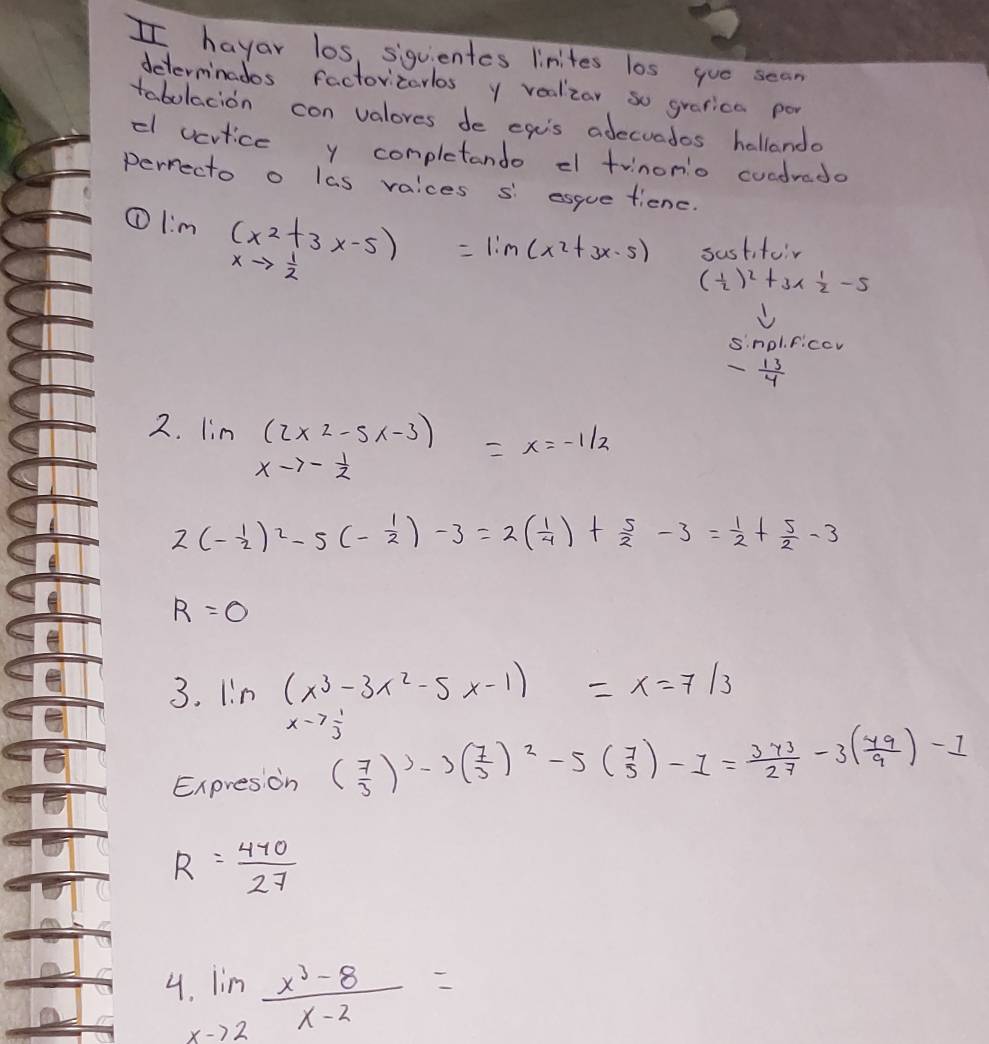 II hayar los siguientes limites los que sean
determinados factorizarlos y realizar su grafica por
tabulación con valores de equis adecuados hallando
el vertice y completando el trinomio cuadrado
perrecto o las raices si esque tiene.
① lim (x² + 3x - 5) = lim (x² + 3x - 5) sustituir
x → 1/2 (1/2)² + 3x 1/2 - 5
↓
simplificar
- 13/4
2. lim (2x2 - 5x - 3) = x = -1/2
x → - 1/2
2(-1/2)² - 5(-1/2) - 3 = 2(1/4) + 5/2 - 3 = 1/2 + 5/2 - 3
R = 0
3. lim (x³ - 3x² - 5x - 1) = x = 7/3
x → 1/3
Expresión (7/3)³ - 3(7/3)² - 5(7/3) - 1 = 343/27 - 3(49/9) - 1
R = 440/27
4. lim x³ - 8 / x - 2 =
x → 2